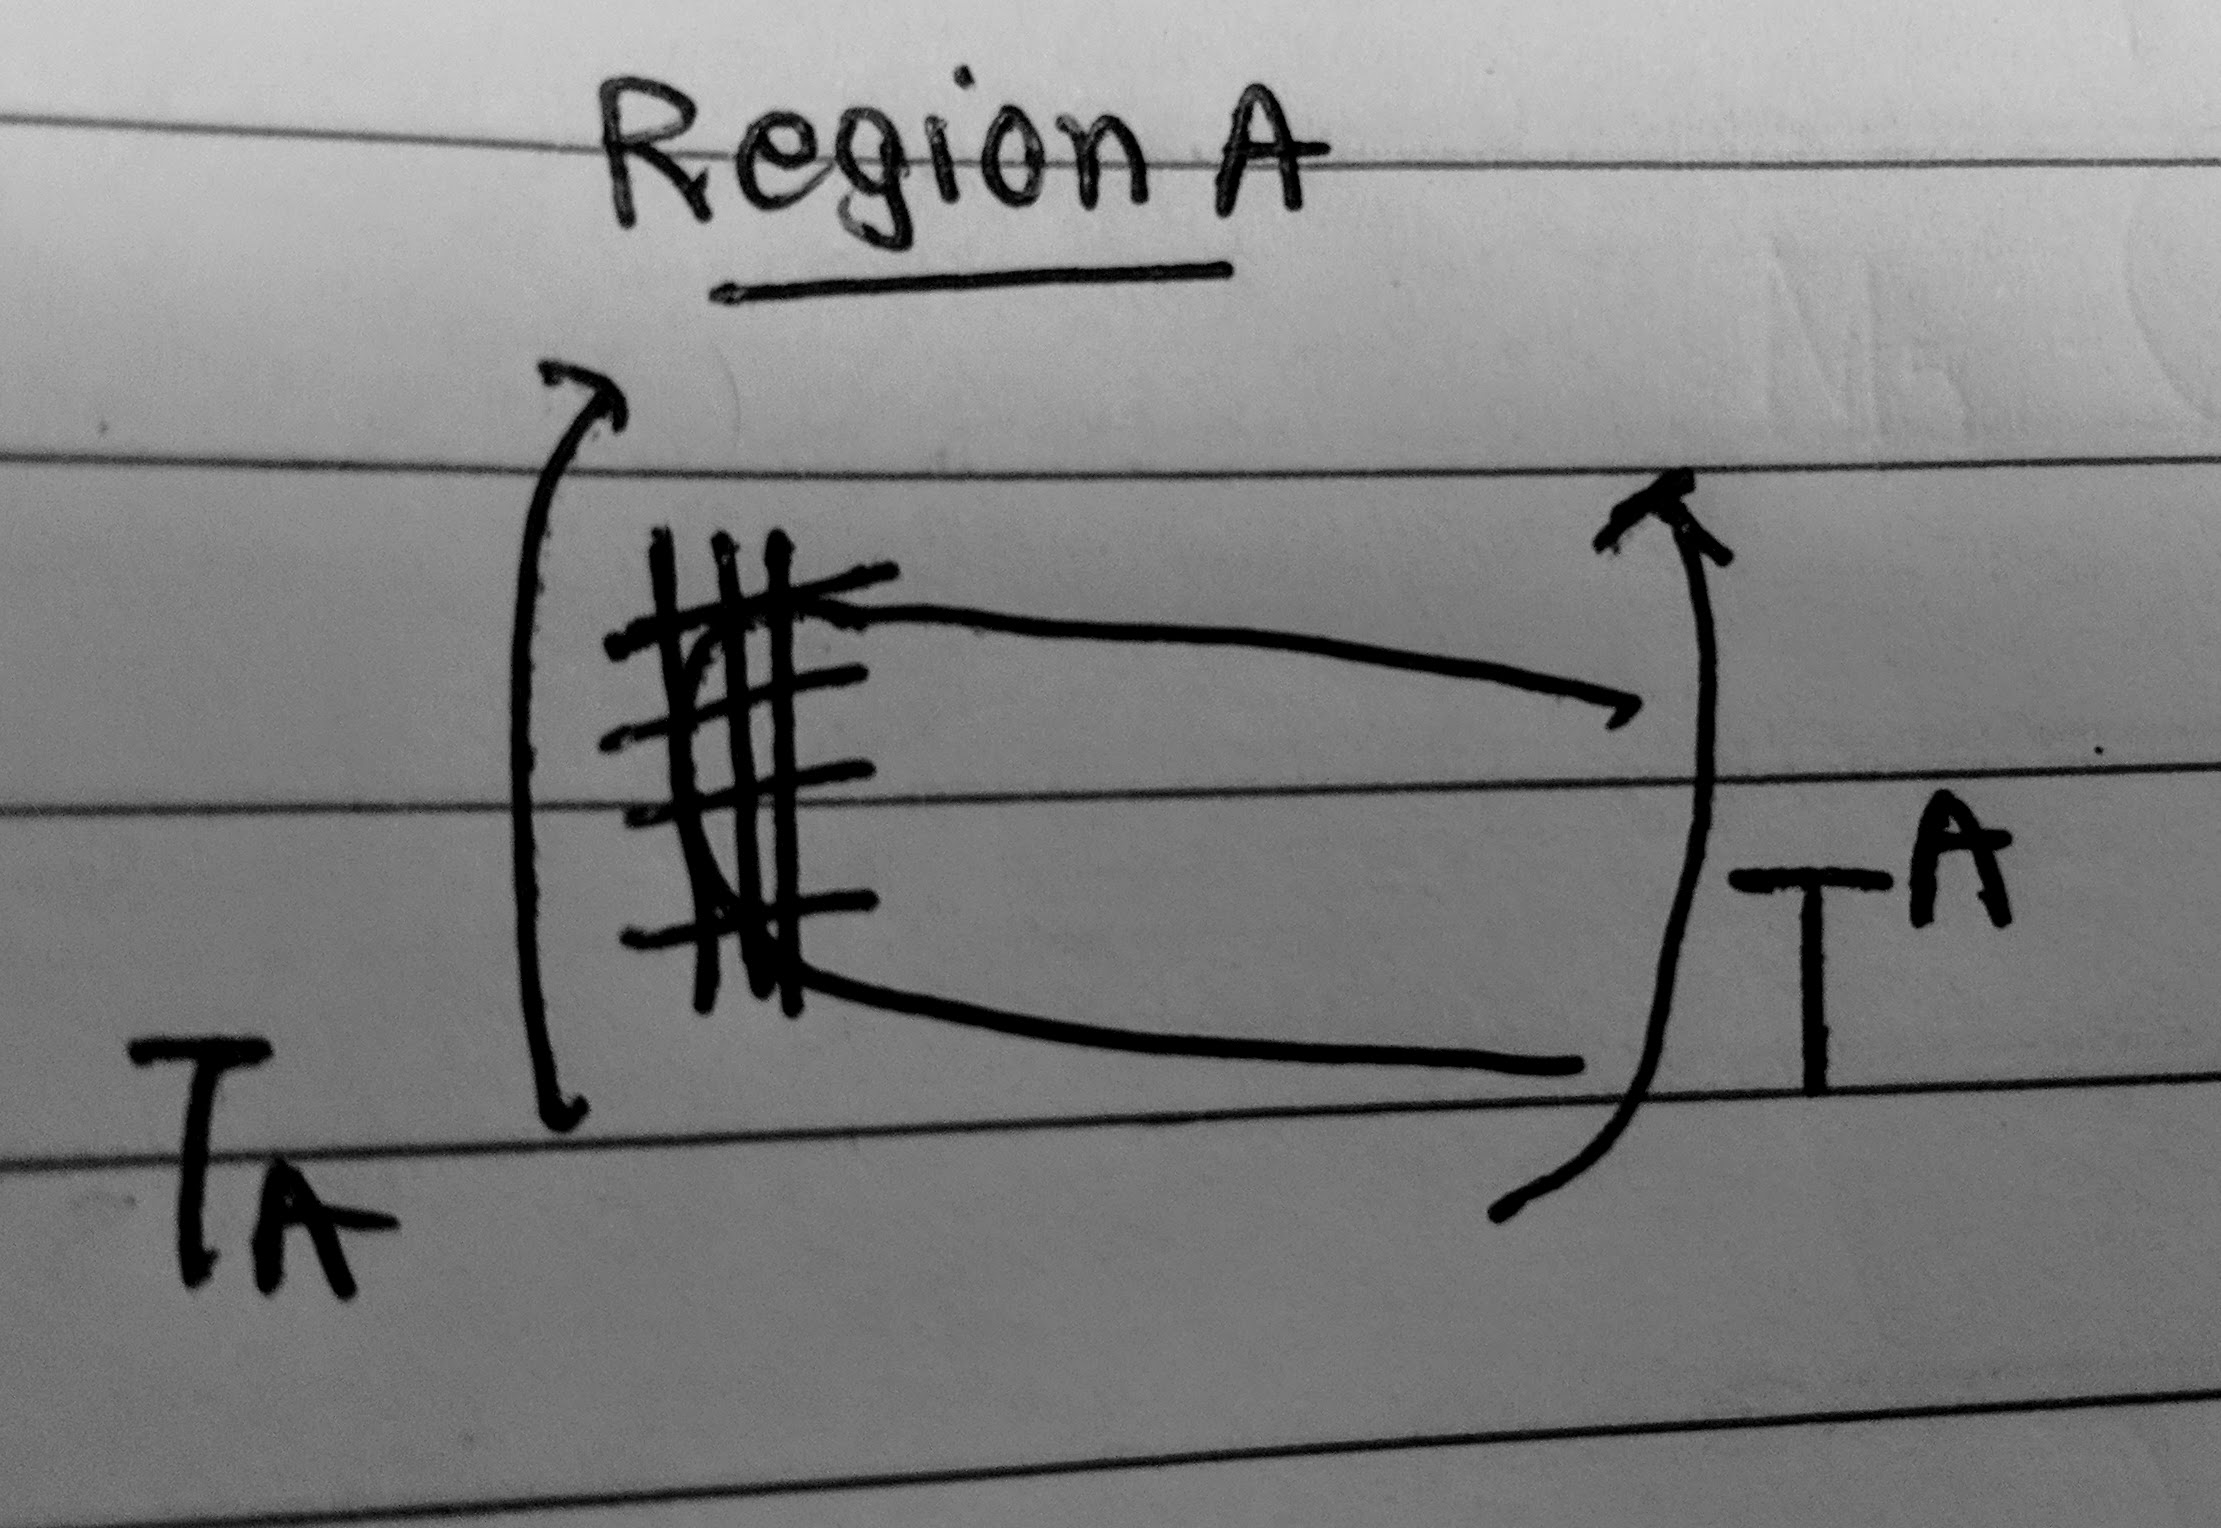 Region A
T^A
T_A